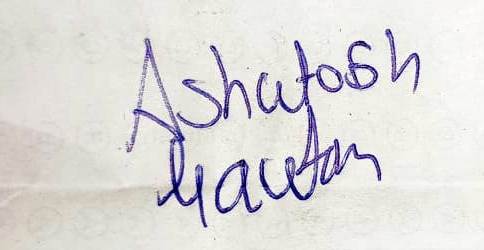 Ashutosh
Gautam